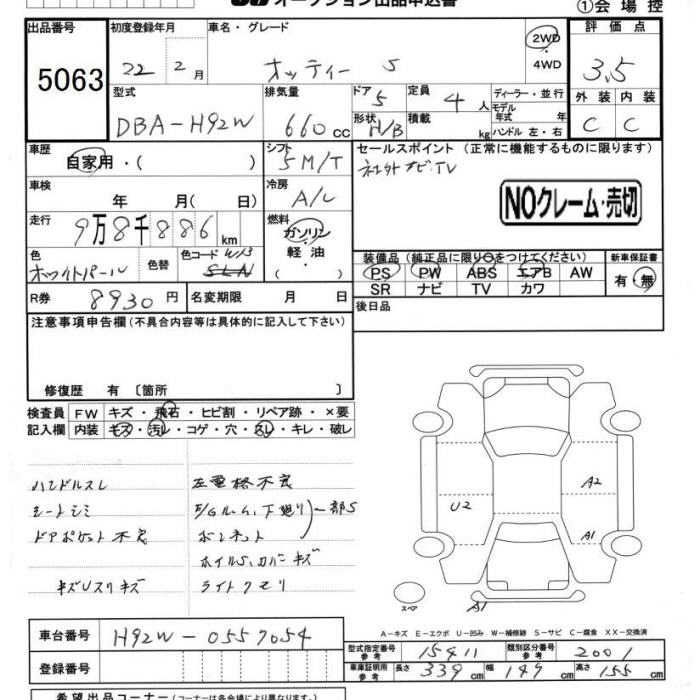 オークション出品申込書
①会場控
出品番号 初度登録年月 車名・グレード 2WD 4WD 評価点
5063 22年 2月 オッティー S 3.5
型式 排気量 ドア 5 定員 4人 ディーラー・並行 外装 内装
DBA-H92W 660cc 形状 H/B 積載 kg モデル年式 年 ハンドル 左・右 C C
車歴 自家用・( ) シフト 5M/T セールスポイント (正常に機能するものに限ります)
車検 年 月( 日) 冷房 A/C ネオ外ナビ・TV
NOクレーム・売切
走行 9万8千886km 燃料 ガソリン・軽油・( )
色 ホワイトパール 色替 色コード W13
装備品 (純正品に限り○をつけてください) 新車保証書
PS PW ABS エアB AW 有・無
SR ナビ TV カワ
R券 8930円 名変期限 月 日
後日品
注意事項申告欄(不具合内容等は具体的に記入して下さい)
修復歴 有 〔箇所 〕
検査員 FW キズ・飛石・ヒビ割・リペア跡・×要
記入欄 内装 キズ・汚レ・コゲ・穴・スレ・キレ・破レ
ハンドルスレ 左電格不良
シートシミ E/Gルーム、下廻り 一部S
ドアポケット不良 ボンネット
ホイルS、カバーキズ
キズUスリキズ ライトクモリ
U2
A2
A1
スペア
A1
A-キズ E-エクボ U-凹み W-補修跡 S-サビ C-腐食 XX-交換済
車台番号 H92W-0557054
型式指定番号 参考 15411 類別区分番号 参考 2001
登録番号 車庫証明用 参考 長さ 339cm 幅 149cm 高さ 155cm
希望出品コーナー(コーナーは各会場により異なります。)